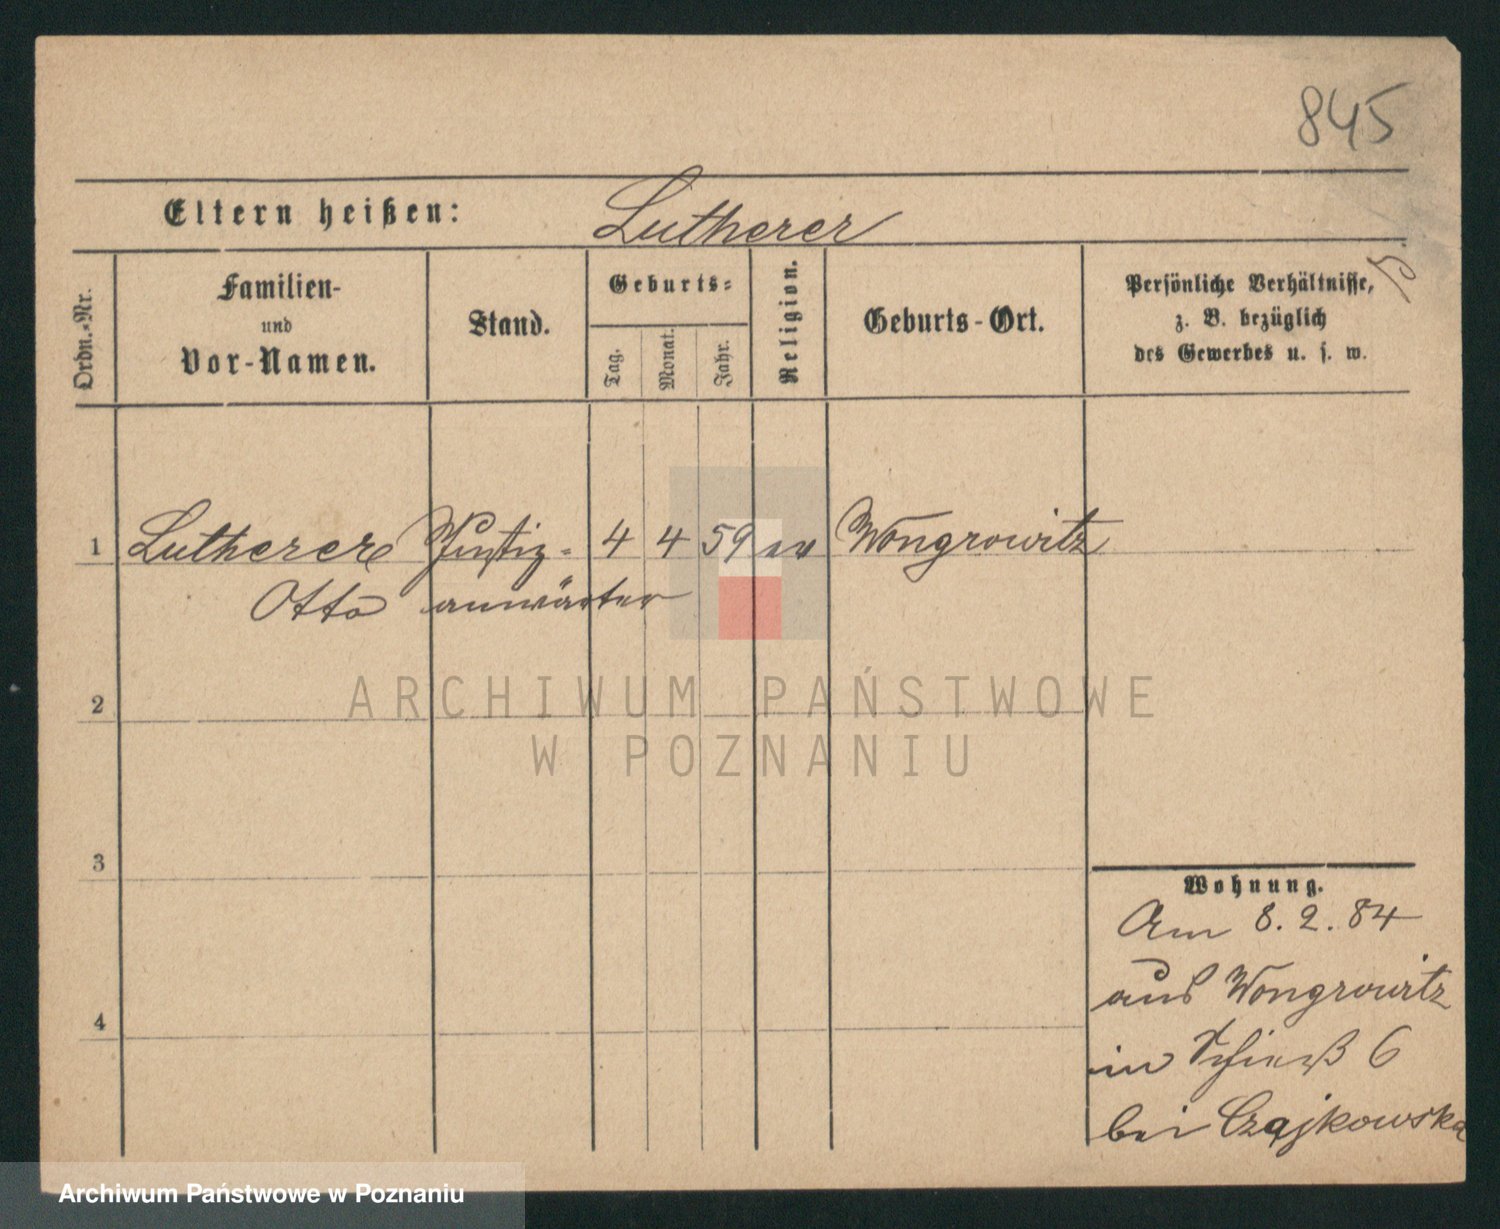 845
Eltern heißen: Lutherer
Ordn.-Nr.
Familien-
und
Vor-Namen.
Stand.
Geburts-
Tag.
Monat.
Jahr.
Religion.
Geburts-Ort.
Persönliche Verhältnisse,
z. B. bezüglich
des Gewerbes u. s. w.
1 Lutherer Justiz- 4 4 59 ev Wongrowitz
Otto anwärter
ARCHIWUM PAŃSTWOWE
W POZNANIU
2
3
4
Wohnung.
Am 8.2.84
aus Wongrowitz
in Schieß 6
bei Czajkowska
Archiwum Państwowe w Poznaniu